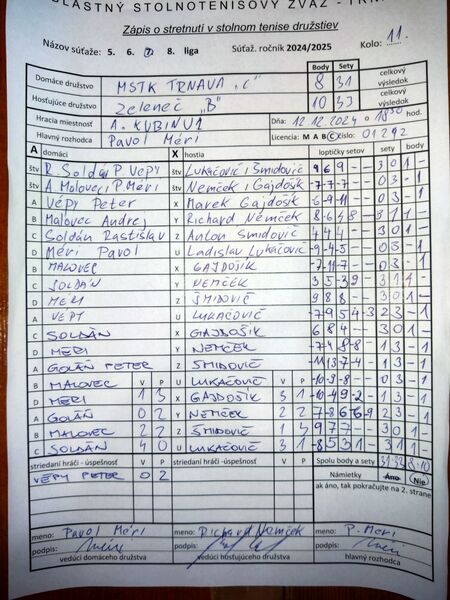 OBLASTNÝ STOLNOTENISOVÝ ZVÄZ - TRN
Zápis o stretnutí v stolnom tenise družstiev
Názov súťaže: 5. 6. 7. 8. liga Súťaž. ročník 2024/2025 Kolo: 11.
Body Sety
Domáce družstvo MSTK TRNAVA "C" 8 31 celkový výsledok
Hosťujúce družstvo Zeleneč "B" 10 33 celkový výsledok
Hracia miestnosť A. KUBINU 1 Dňa: 12.12.2024 o 18:30 hod.
Hlavný rozhodca Pavol Méri Licencia: M A B C číslo: 01292
A domáci X hostia loptičky setov sety body
štv R. Soldán P. Vépy štv Lukačovič i Šmidovič 9 6 9 - - 3 0 1 -
štv A. Malovec i P. Méri štv Nemček i Gajdošík -7 -7 -7 - - 0 3 - 1
A Vépy Peter X Marek Gajdošík - - 0 3 - 1
B Malovec Andrej Y Richard Nemček 3 1 1 -
C Soldán Rastislav Z Anton Šmidovič 4 4 4 - - 3 0 1 -
D Méri Pavol U Ladislav Lukačovič -9 -4 -5 - - 0 3 - 1
B MALOVEC X GAJDOŠÍK -7 -11 -7 - - 0 3 - 1
C SOLDÁN Y NEMČEK 3 1 1 -
D MÉRI Z ŠMIDOVIČ 9 8 8 - - 3 0 1 -
A VÉPY U LUKAČOVIČ -7 9 5 -4 -3 2 3 - 1
C SOLDÁN X GAJDOŠÍK 6 8 4 - - 3 0 1 -
D MÉRI Y NEMČEK 1 3 - 1
A GOLÁN PETER Z ŠMIDOVIČ 1 3 - 1
B MALOVEC V P U LUKAČOVIČ V P -10 -9 -8 - - 0 3 - 1
D MÉRI 1 3 X GAJDOŠÍK 3 1 1 3 - 1
A GOLÁN 0 2 Y NEMČEK 2 2 2 3 - 1
B MALOVEC 2 2 Z ŠMIDOVIČ 1 3 9 7 7 - - 3 0 1 -
C SOLDÁN 4 0 U LUKAČOVIČ 3 1 -8 5 3 1 - 3 1 1 -
striedaní hráči - úspešnosť V P striedaní hráči -úspešnosť V P Spolu body a sety 31-33 8-10
VÉPY PETER 0 2 Námietky Áno Nie
ak áno, tak pokračujte na 2. strane
meno: Pavol Méri meno: Richard Nemček meno: P. Méri
podpis: podpis: podpis:
vedúci domáceho družstva vedúci hosťujúceho družstva hlavný rozhodca